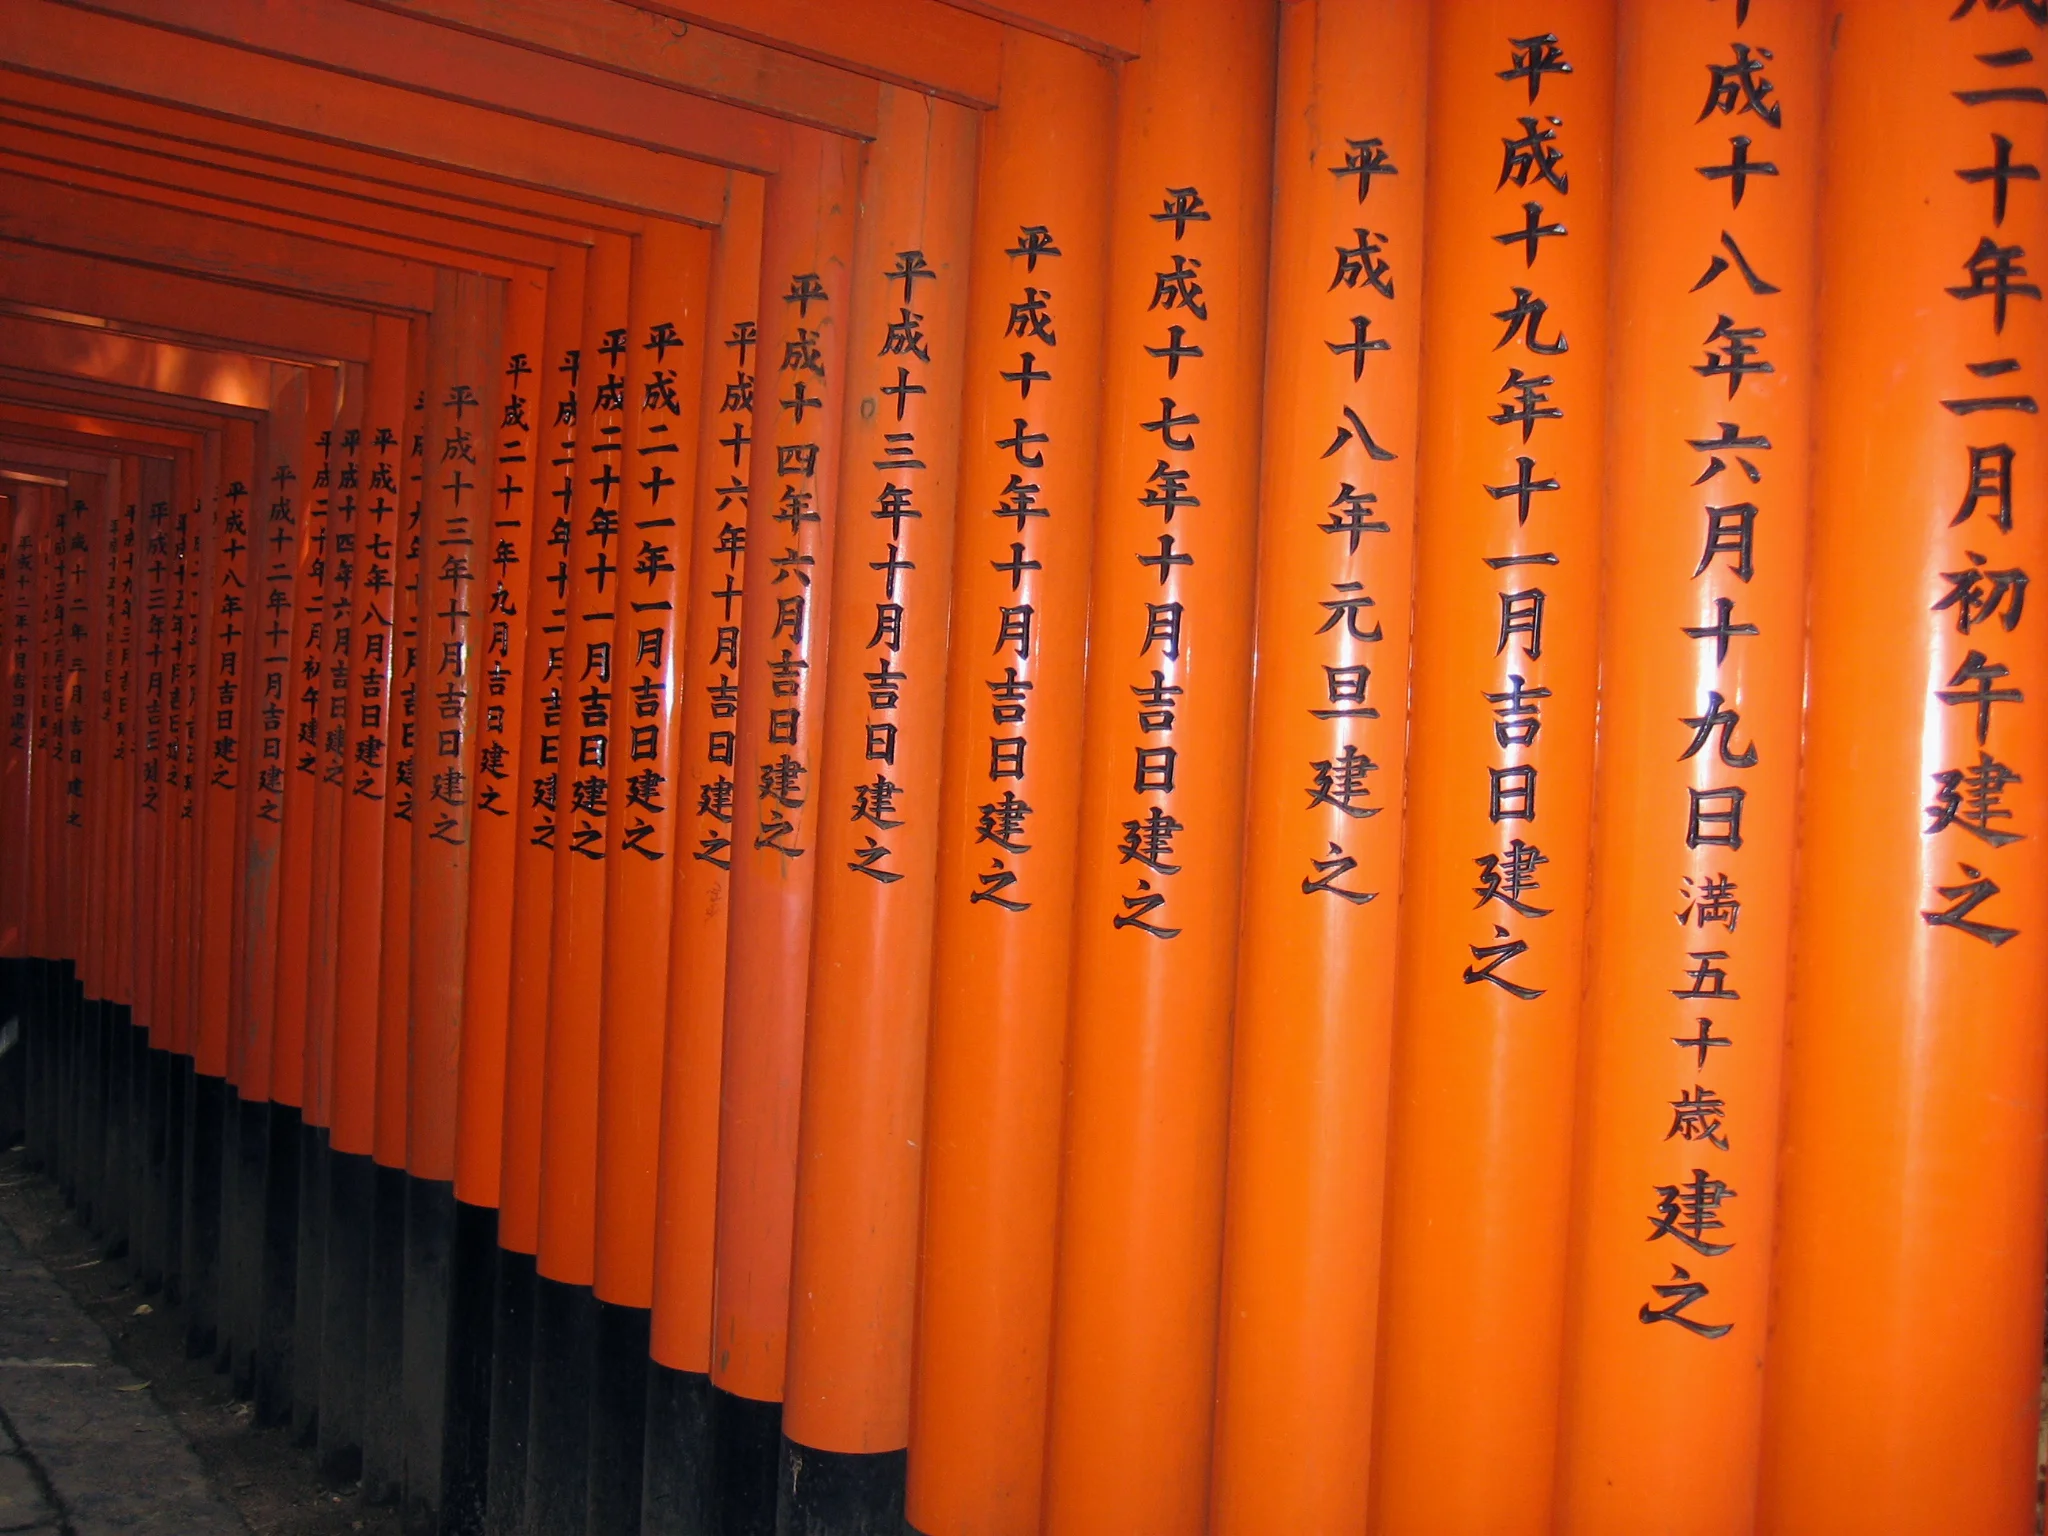 成二十年二月初午建之
平成十八年六月十九日満五十歳建之
平成十九年十一月吉日建之
平成十八年元旦建之
平成十七年十月吉日建之
平成十七年十月吉日建之
平成十三年十月吉日建之
平成十四年六月吉日建之
平成十六年十月吉日建之
平成二十一年一月吉日建之
平成二十年十一月吉日建之
平成二十年十二月吉日建之
平成二十一年九月吉日建之
平成十三年十月吉日建之
平成十七年八月吉日建之
平成十四年六月吉日建之
平成二十年二月初午建之
平成十二年十一月吉日建之
平成十八年十月吉日建之
平成十三年十月吉日建之
平成十九年三月吉日建之
平成十二年三月吉日建之
平成十二年十月吉日建之